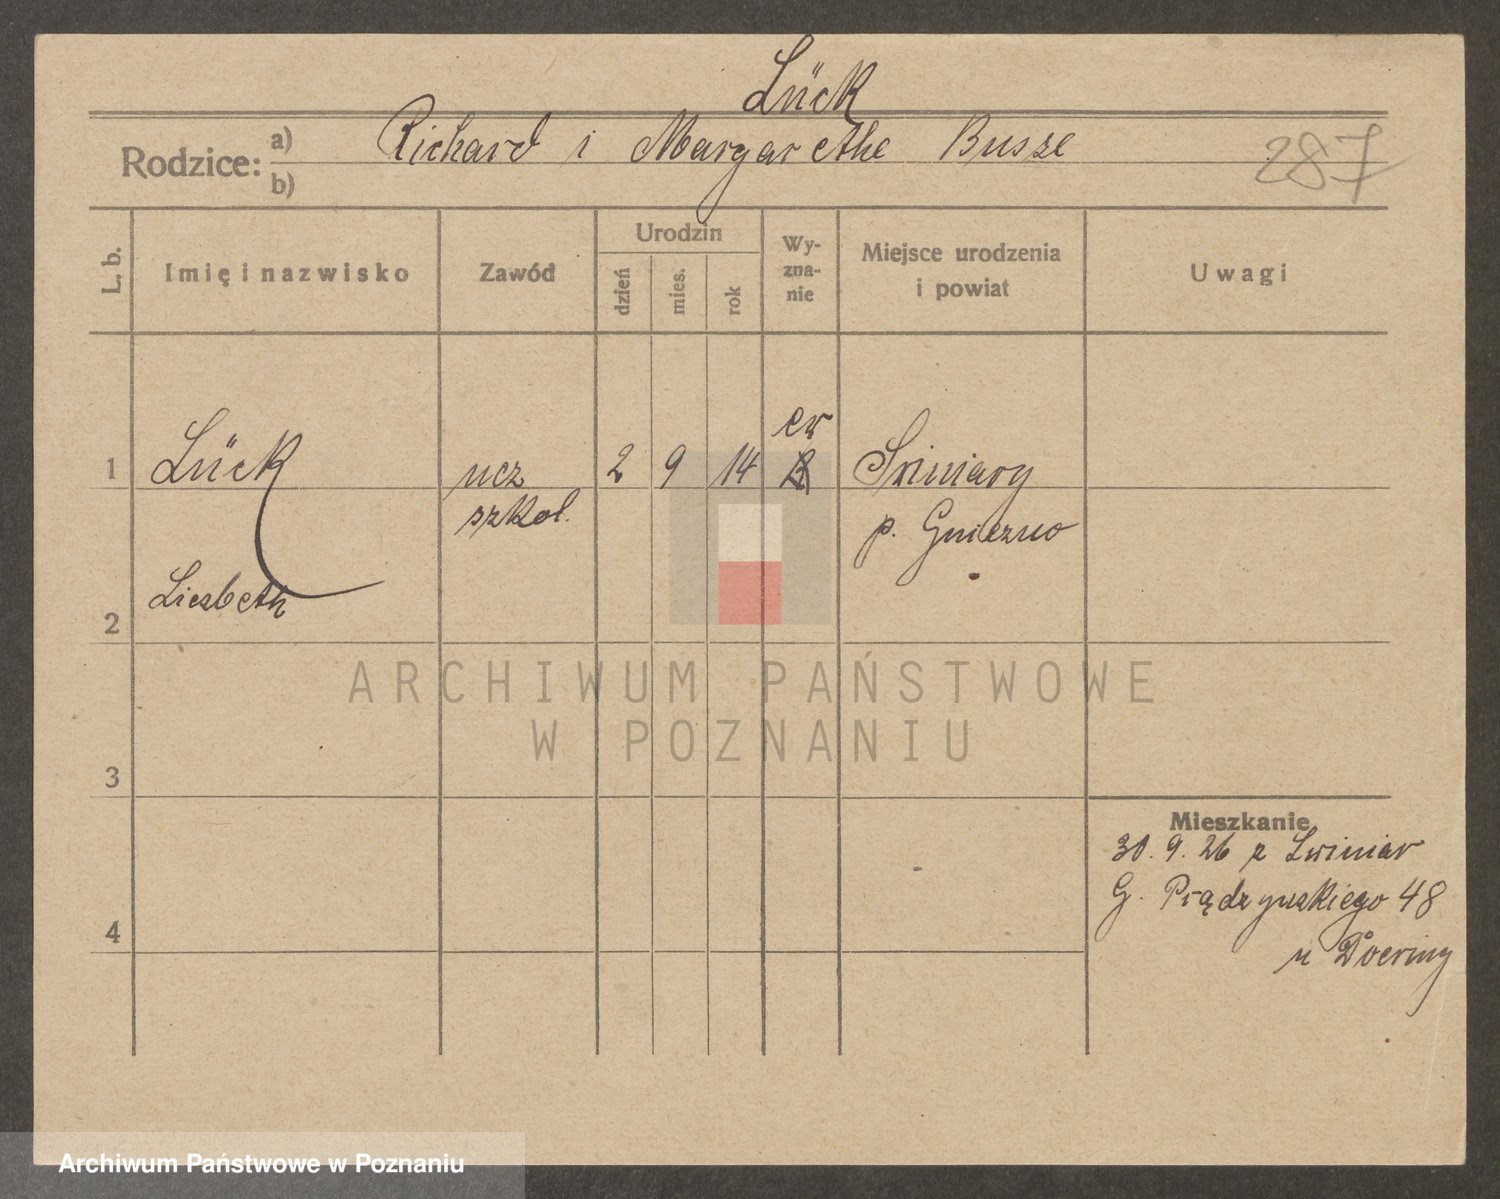 Lück
Rodzice: a) Richard i Margarethe Busze
b)
287
L. b.
Imię i nazwisko
Zawód
Urodzin
dzień
mies.
rok
Wy-
zna-
nie
Miejsce urodzenia
i powiat
Uwagi
ew
1 Lück ucz 2 9 14
szkol. p. Gniezno
Liesbeth
2
3
4
ARCHIWUM PAŃSTWOWE
W POZNANIU
Mieszkanie
30. 9. 26 z
G. Prądzyńskiego 48
u Doering
Archiwum Państwowe w Poznaniu